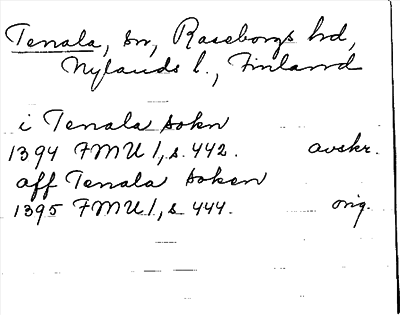 Tenala, sn, Raseborgs hd,
Nylands l., Finland
i Tenala sokn
1394 FMU 1, s. 442. avskr.
aff Tenala soken
1395 FMU 1, s 444. orig.